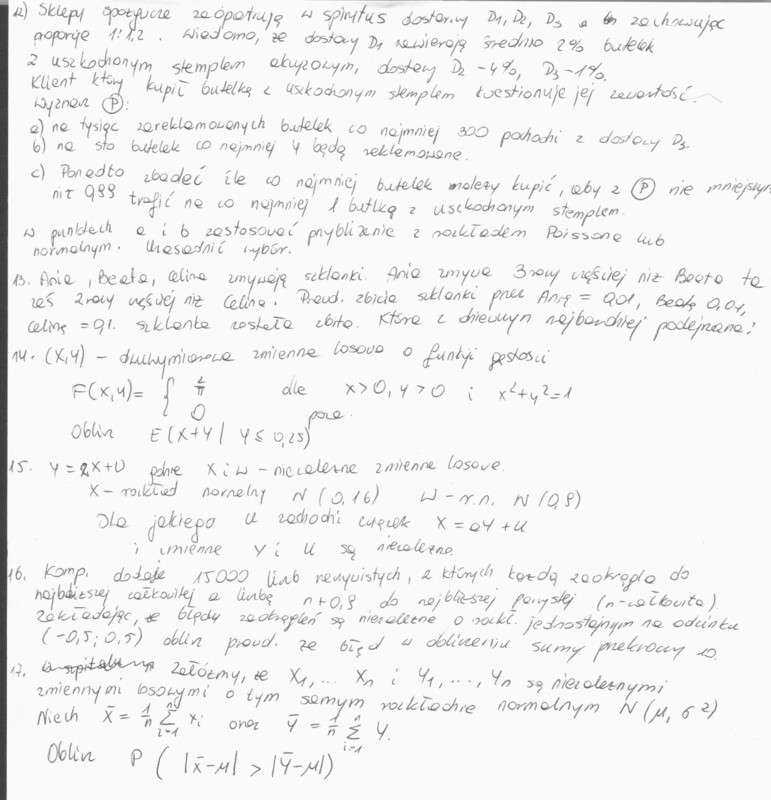 12) Sklepy spożywcze zaopatrują w spirytus dostawcy D1, D2, D3 zachowując
proporcje 1:1:2. Wiadomo, że dostawy D1 zawierają średnio 2% butelek
z uszkodzonym stemplem akcyzowym, dostawy D2 -4%, D3 -1%.
Klient który kupił butelkę z uszkodzonym stemplem kwestionuje jej zawartość.
Wyznacz (P):
a) na tysiąc zareklamowanych butelek co najmniej 300 pochodzi z dostawy D3
b) na sto butelek co najmniej 4 będą reklamowane.
c) Ponadto zbadać ile co najmniej butelek należy kupić, aby z (P) nie mniejszym
niż 0,99 trafić na co najmniej 1 butlkę z uszkodzonym stemplem.
w punktach a i b zastosować przybliżenie z rozkładem Poissona lub
normalnym. Uzasadnić wybór.
13. Ania, Beata, Celina zmywają szklanki. Ania zmywa 3razy częściej niż Beata ta
zaś 2razy częściej niż Celina. Prawd. zbicia szklanki przez Anię = 0,01, Beatę 0,01,
Celinę = 0,1. szklanka została zbita. Która z dziewczyn najbardziej podejrzana?
14. (X,Y) – dwuwymiarowa zmienna losowa o funkcji gęstości
F(x,y)= { 2/π dla x>0, y>0 i x²+y²=1
0 poza.
Oblicz E(X+Y | Y ≤ 0,25)
15. Y = 2X+W gdzie X i W – niezależne zmienne losowe.
X – rozkład normalny N(0,16) W – r.n. N(0,9)
Dla jakiego U zachodzi związek X = aY + U
i zmienne Y i U są niezależne.
16. Komp. dodaje 15000 liczb rzeczywistych, z których każdą zaokrągla do
najbliższej całkowitej a liczbę n+0,5 do najbliższej parzystej (n-całkowita).
Zakładając, że błędy zaokrągleń są niezależne o rozkł. jednostajnym na odcinku
(-0,5; 0,5) oblicz prawd. że błąd w obliczeniu sumy przekroczy 10.
17. Załóżmy, że X1,... Xn i Y1,..., Yn są niezależnymi
zmiennymi losowymi o tym samym rozkładzie normalnym N(μ, σ²)
Niech X̄ = 1/n Σ_{i=1}^{n} Xi oraz Ȳ = 1/n Σ_{i=1}^{n} Y.
Oblicz P ( |X̄-μ| > |Ȳ-μ| )